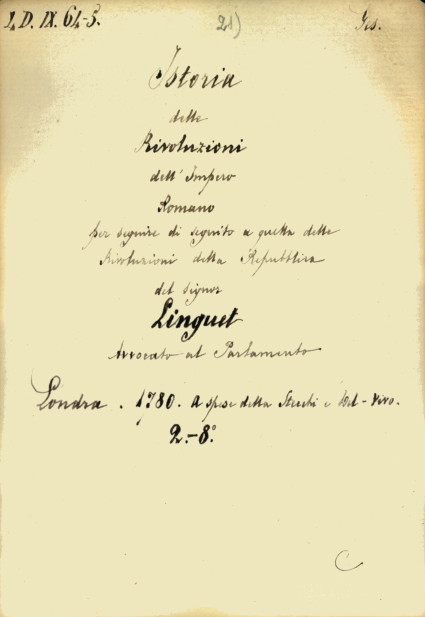 4. D. IX. 64-5. 21) Ges.
Istoria
delle
Rivoluzioni
dell' Impero
Romano
per seguire di seguito a quella delle
Rivoluzioni della Repubblica
del signor
Linguet
Avvocato al Parlamento
Londra . 1780. A spese della Stecchi e Del-Vivo.
2.-8.°
C